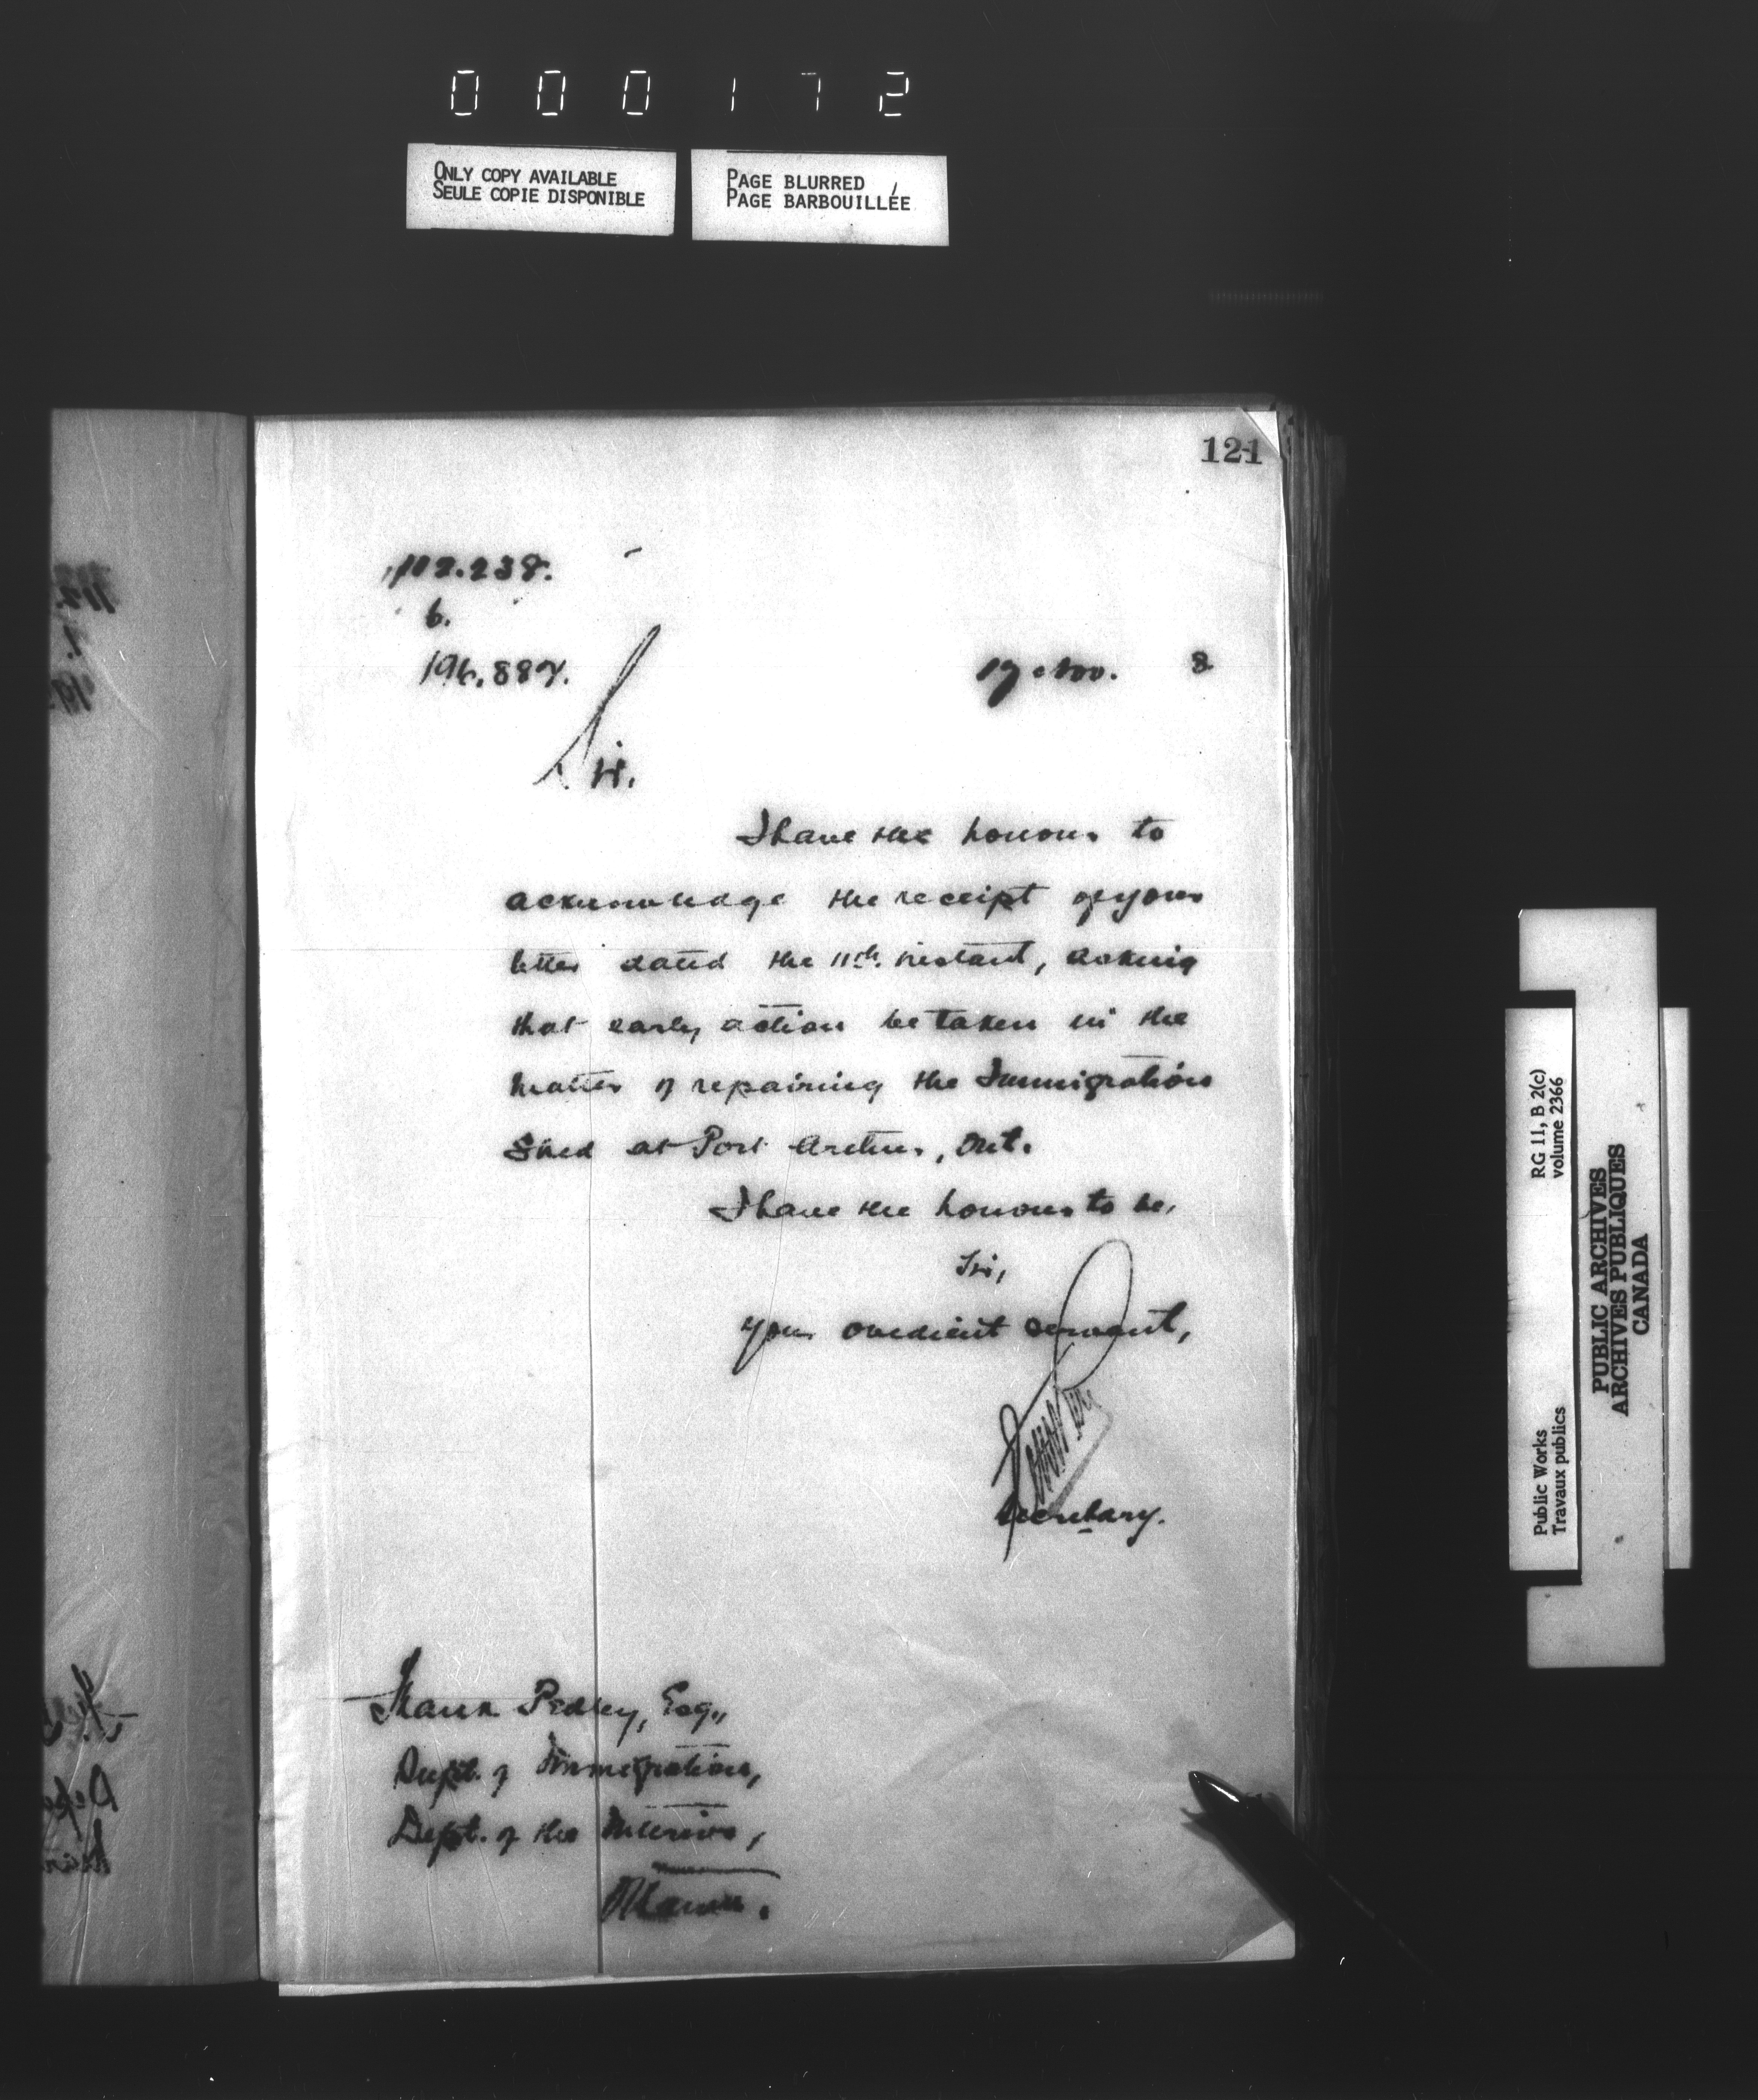 000172
ONLY COPY AVAILABLE
SEULE COPIE DISPONIBLE
PAGE BLURRED
PAGE BARBOUILLÉE
121
102.238.
6.
196.887.
17 Nov. 8
Sir.
I have the honour to
acknowledge the receipt of your
letter dated the 11th. instant, asking
that early action be taken in the
matter of repairing the Immigration
Shed at Port Arthur, Ont.
I have the honour to be,
Sir,
Your obedient servant,
Secretary.
Frank Pedley, Esq.,
Supt. of Immigration,
Dept. of the Interior,
Ottawa.
RG 11, B 2(c)
volume 2366
Public Works
Travaux publics
PUBLIC ARCHIVES
ARCHIVES PUBLIQUES
CANADA